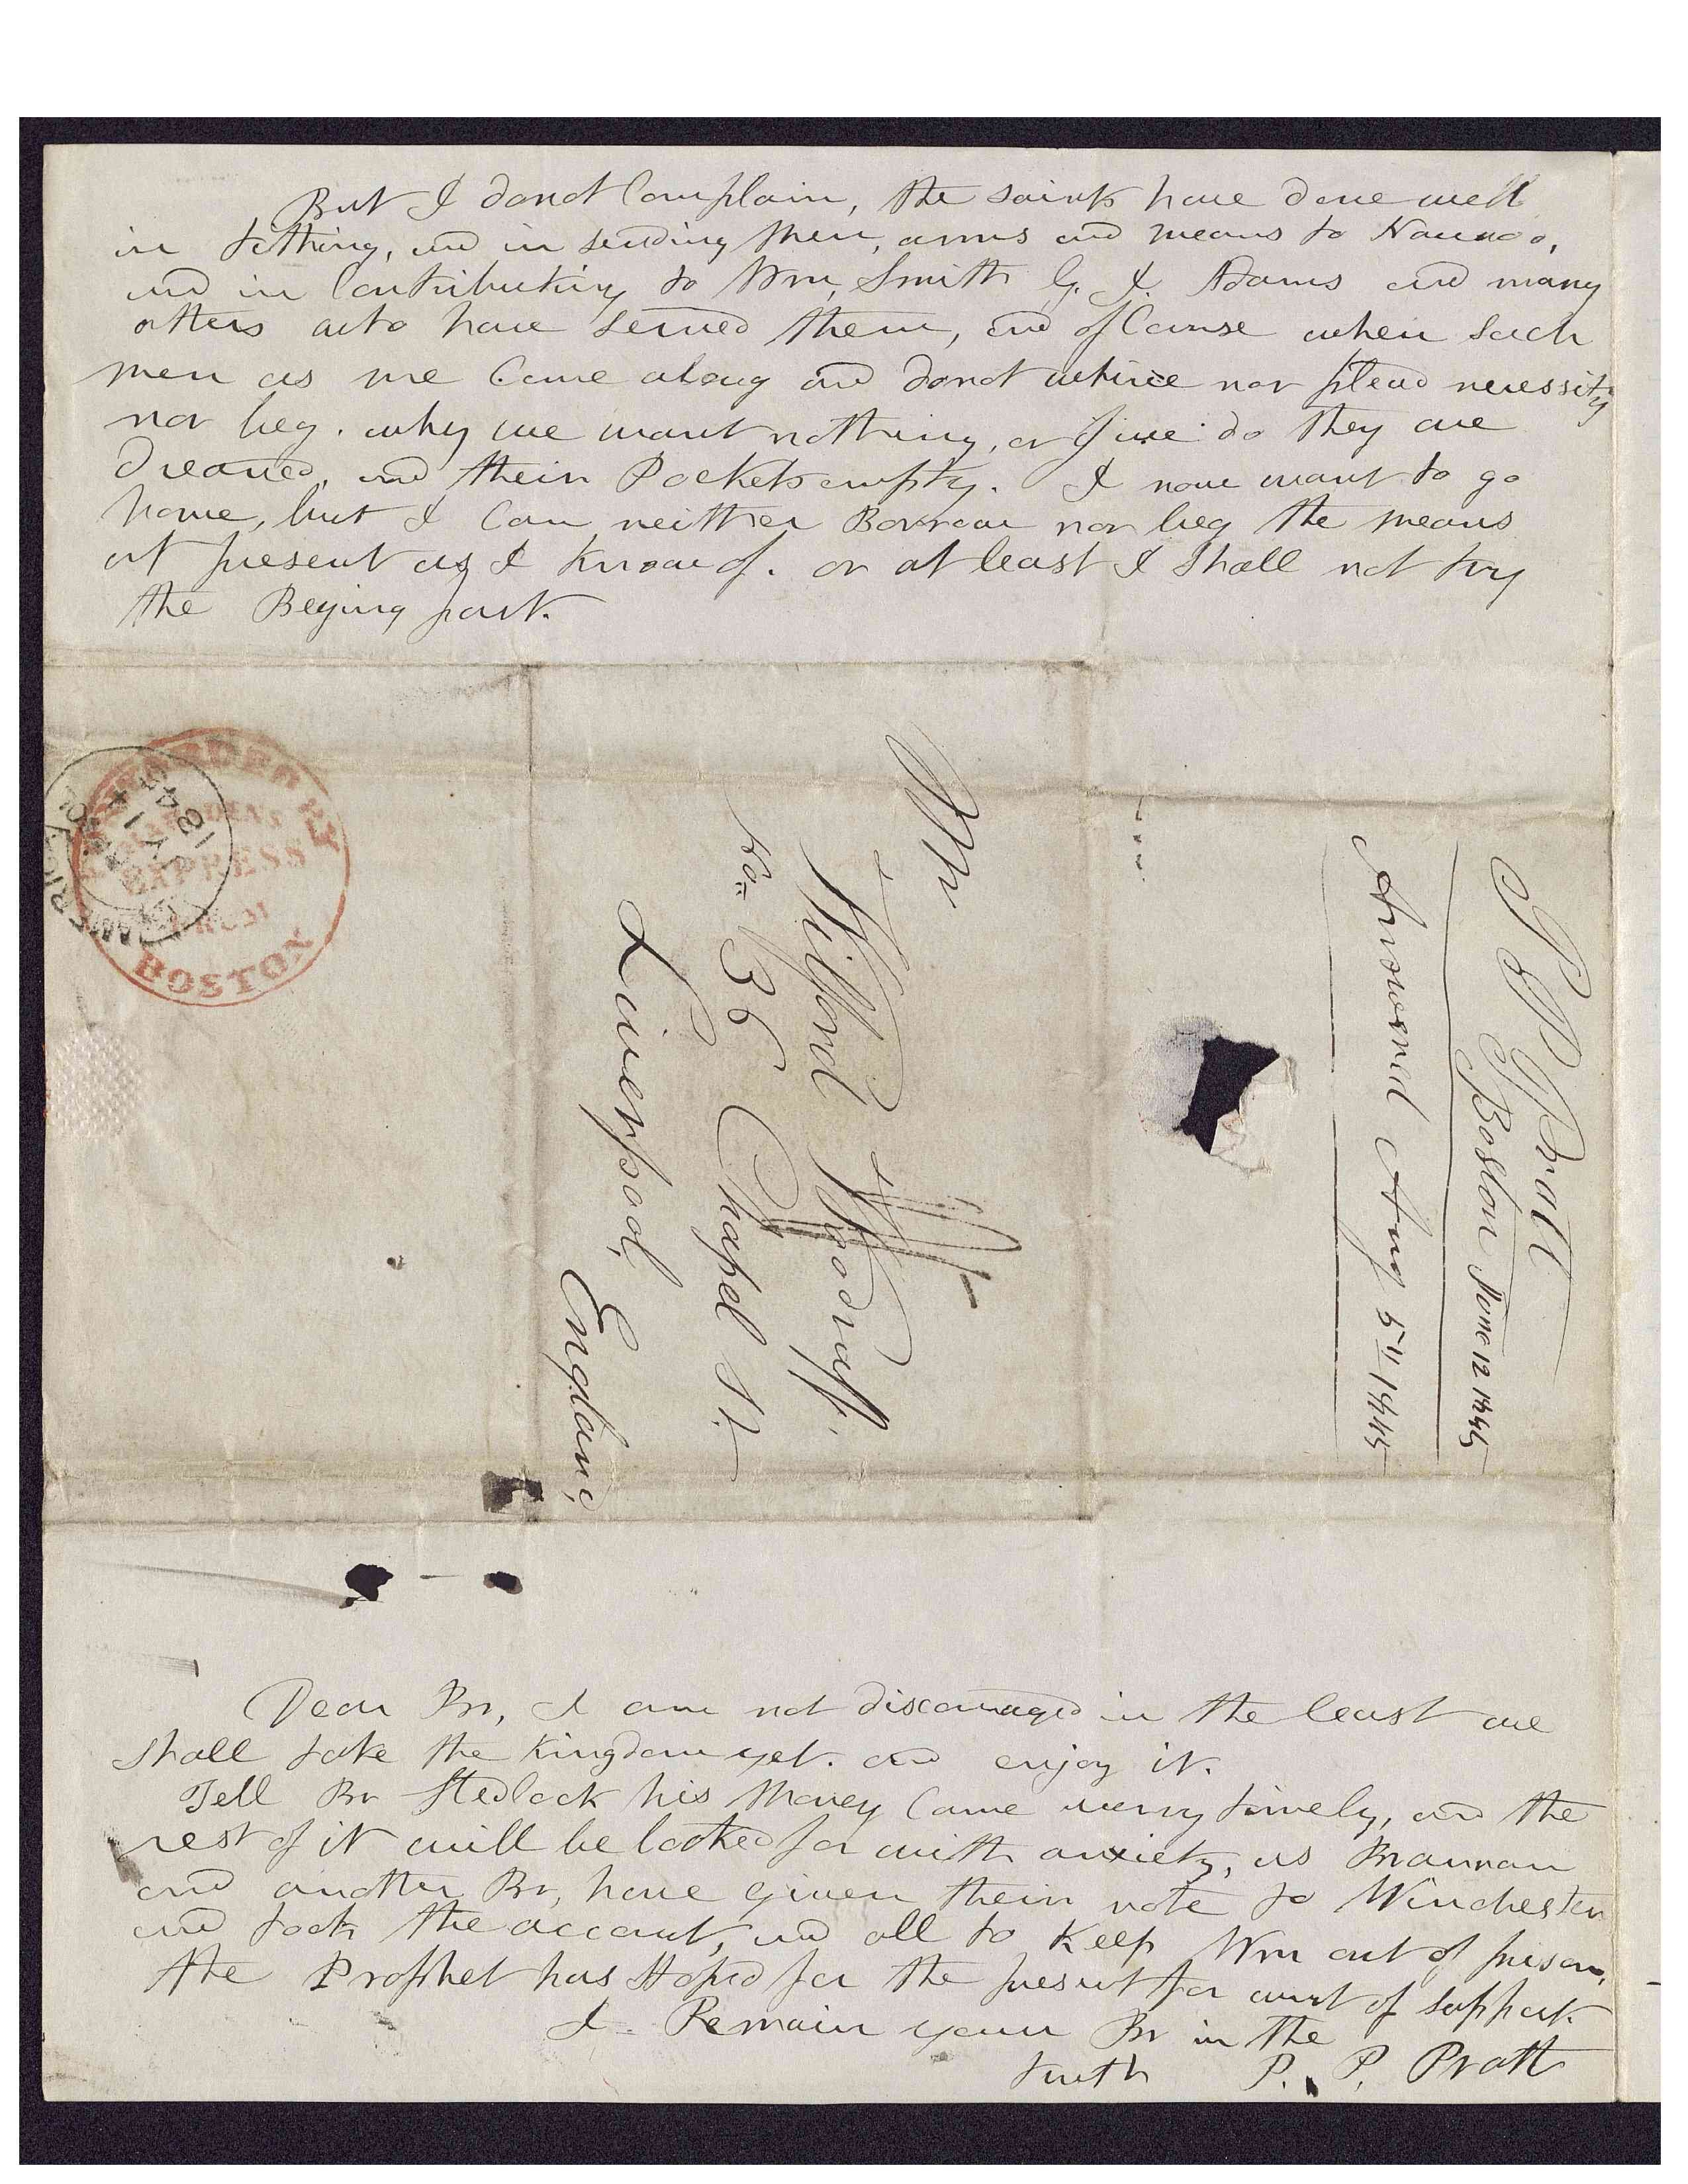 But I donot Complain, the saints have done well
in tithing, and in sending men, arms and means to Nauvoo,
and in Contributing to Wm, Smith G. J. Adams and many
others who have served them, and of Course when such
men as me Come along and donot whine nor plead necessity
nor beg. why we want nothing, or if we do they are
dreaned, and their Pockets empty. I now want to go
home, but I Can neither Borrow nor beg the means
at present as I know of. or at least I shall not try
the Beging part.
FORWARDED BY
HARNDEN'S
EXPRESS
FROM
BOSTON
AMERICA
1845
Mr
Wilford Woodruff.
No. 36 Chapel St.
Liverpool,
England
P P Pratt
Boston June 12 1845
Answered Aug 5th 1845
Dear Br, I am not discouraged in the least we
shall take the Kingdom yet. and enjoy it.
Tell Br Hedlock his money Came very timely, and the
rest of it will be looked for with anxiety, as Brannan
and another Br, have given their note to Winchester
and took the account, and all to Keep Wm out of prison,
the Prophet has Stoped for the present for want of support.
I Remain your Br in the
truth P. P. Pratt